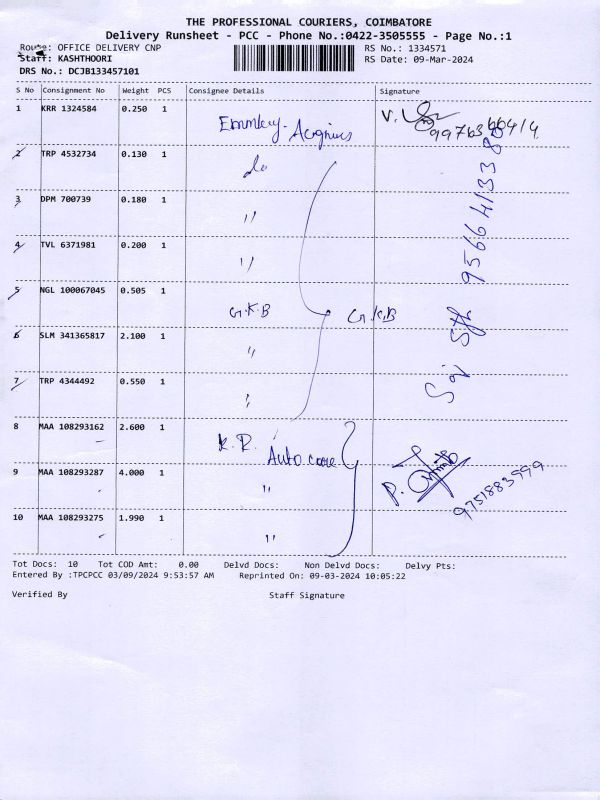 THE PROFESSIONAL COURIERS, COIMBATORE
Delivery Runsheet - PCC - Phone No.:0422-3505555 - Page No.:1
Route: OFFICE DELIVERY CNP RS No.: 1334571
Staff: KASHTHOORI RS Date: 09-Mar-2024
DRS No.: DCJB133457101
S No Consignment No Weight PCS Consignee Details Signature
1 KRR 1324584 0.250 1
2 TRP 4532734 0.130 1 do
3 DPM 700739 0.180 1 "
4 TVL 6371981 0.200 1 "
5 NGL 100067045 0.505 1 G.K.B G.K.B
6 SLM 341365817 2.100 1 "
7 TRP 4344492 0.550 1 "
8 MAA 108293162 2.600 1 K.R. Auto care
9 MAA 108293287 4.000 1 " 9751883999
10 MAA 108293275 1.990 1 "
Tot Docs: 10 Tot COD Amt: 0.00 Delvd Docs: Non Delvd Docs: Delvy Pts:
Entered By :TPCPCC 03/09/2024 9:53:57 AM Reprinted On: 09-03-2024 10:05:22
Verified By Staff Signature